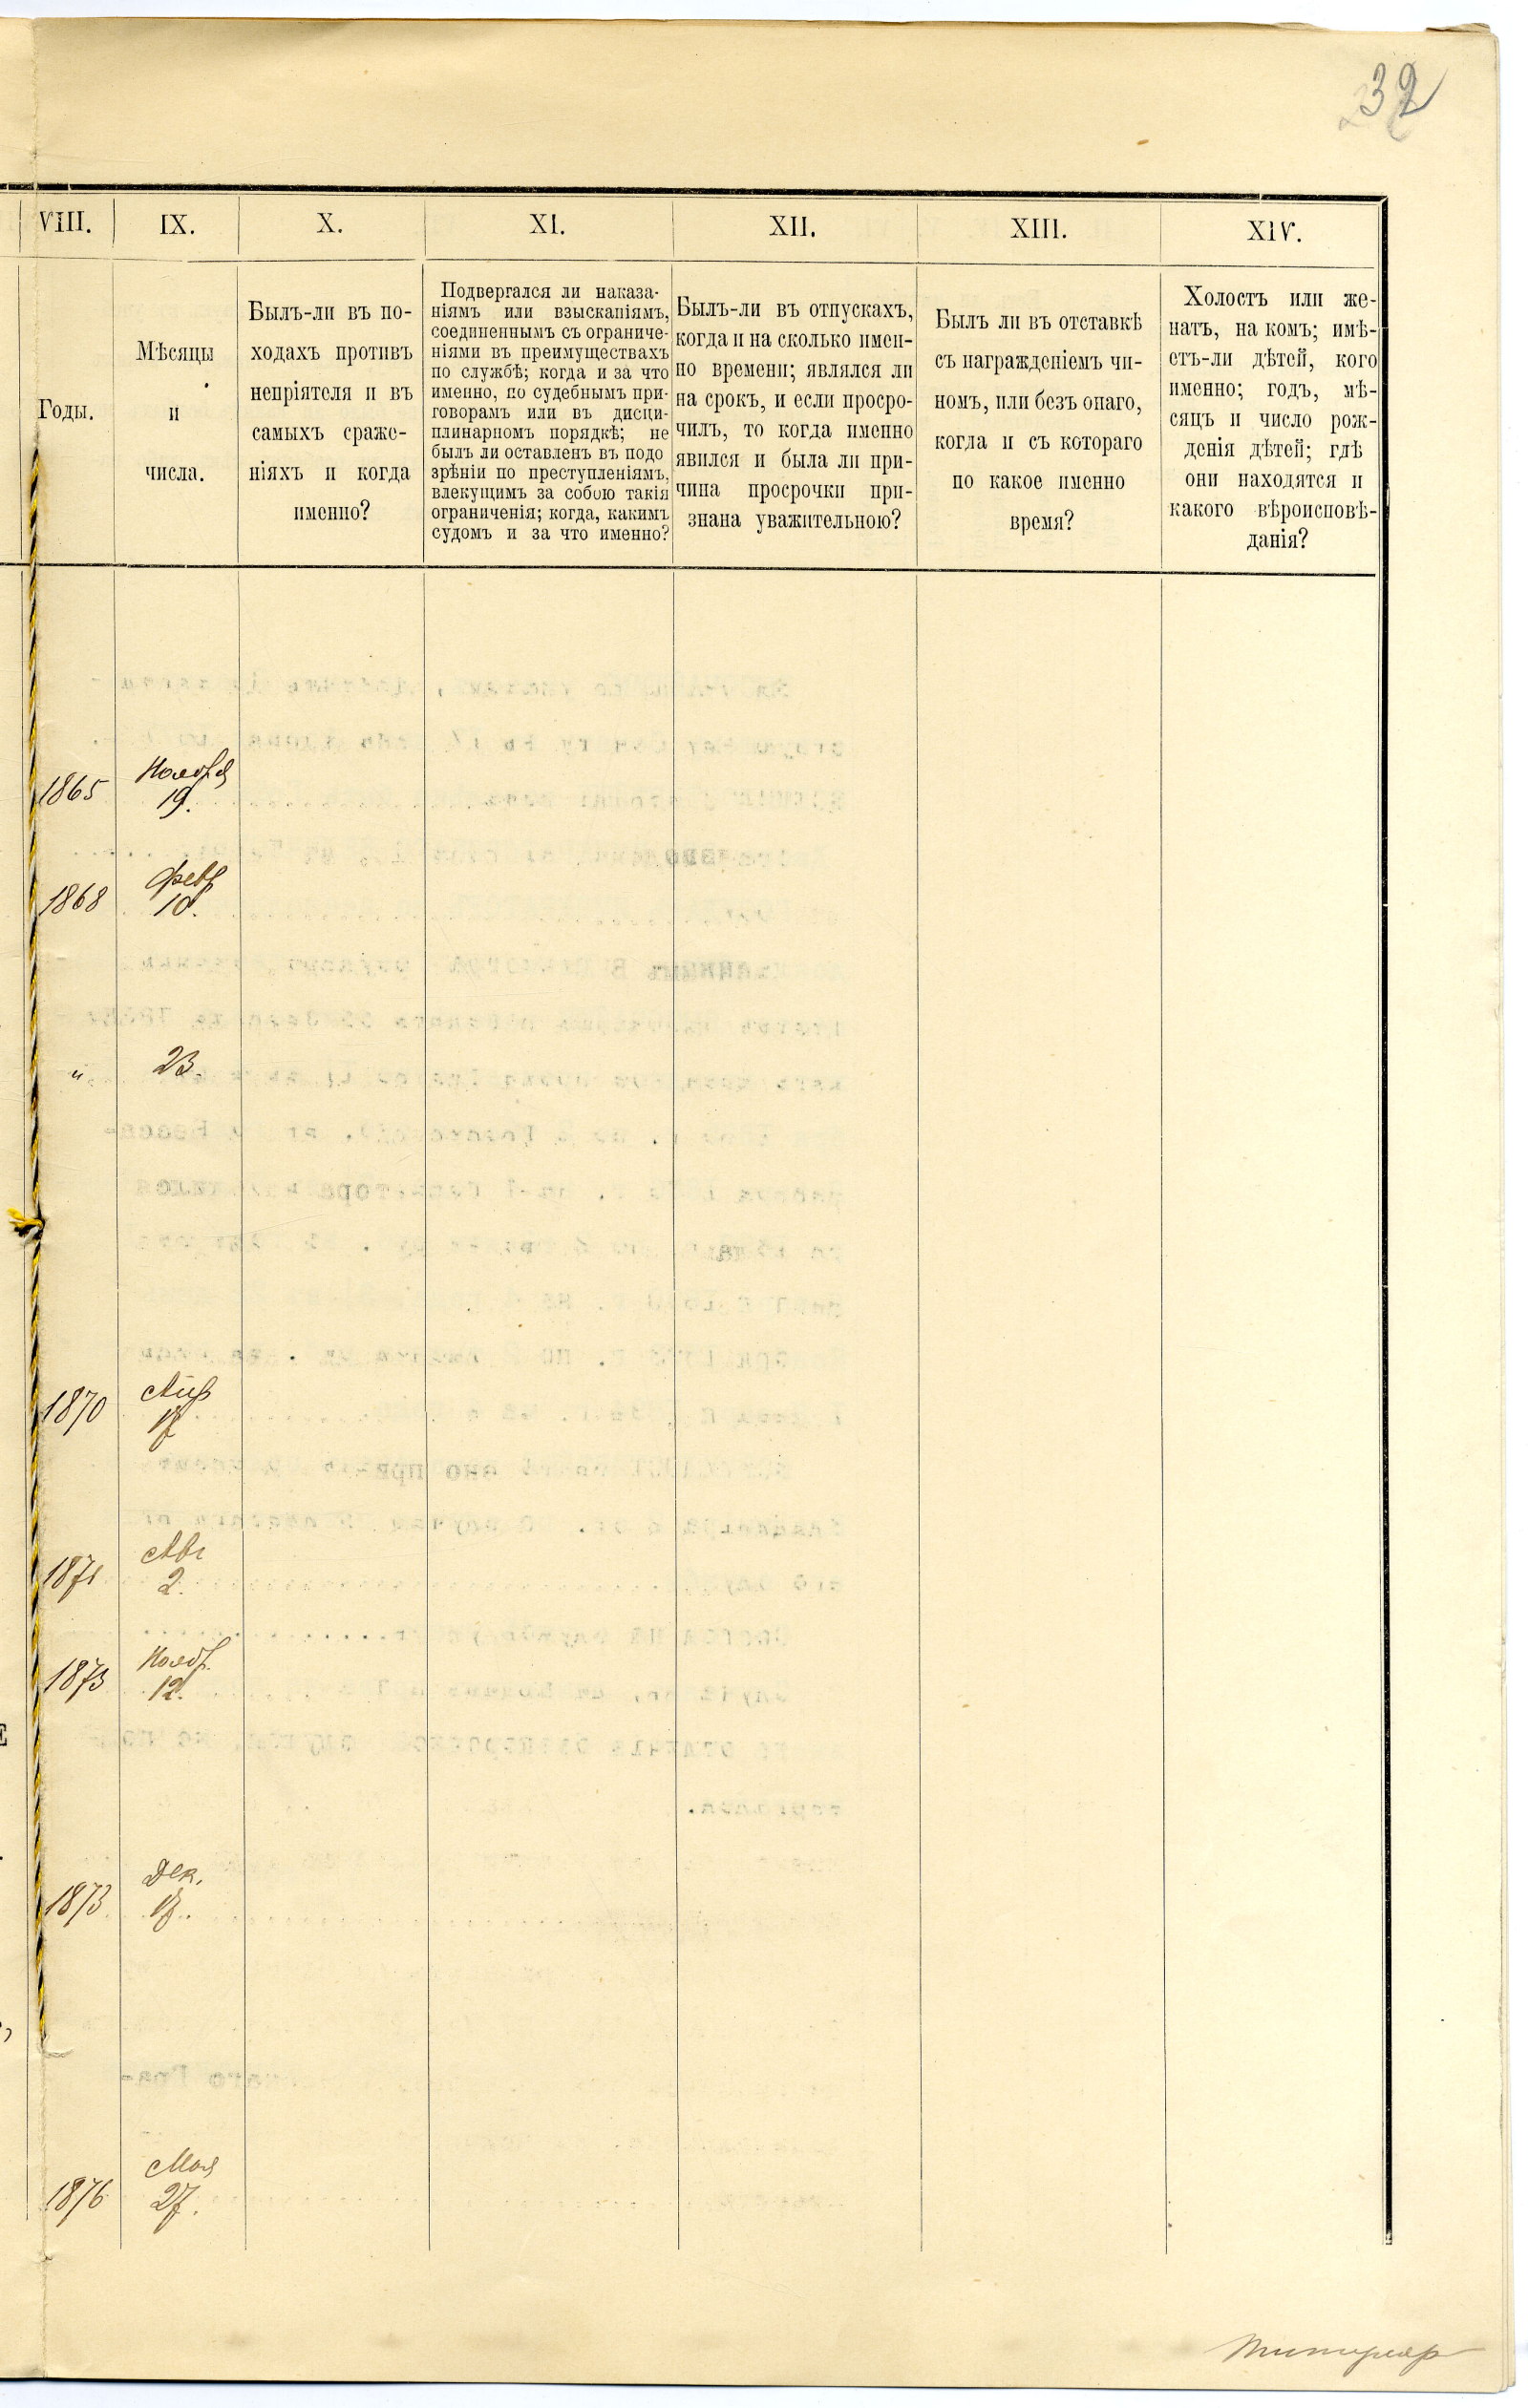 32
VIII.
IX.
X.
XI.
XII.
XIII.
XIV.
Годы.
Мѣсяцы
и
числа.
Былъ-ли въ по-
ходахъ противъ
непріятеля и въ
самыхъ сраже-
ніяхъ и когда
именно?
Подвергался ли наказа-
ніямъ или взысканіямъ,
соединеннымъ съ ограниче-
ніями въ преимуществахъ
по службѣ; когда и за что
именно, по судебнымъ при-
говорамъ или въ дисци-
плинарномъ порядкѣ; не
былъ ли оставленъ въ подо
зрѣніи по преступленіямъ,
влекущимъ за собою такія
ограниченія; когда, какимъ
судомъ и за что именно?
Былъ-ли въ отпускахъ,
когда и на сколько имен-
но времени; являлся ли
на срокъ, и если просро-
чилъ, то когда именно
явился и была ли при-
чина просрочки при-
знана уважительною?
Былъ ли въ отставкѣ
съ награжденіемъ чи-
номъ, или безъ онаго,
когда и съ котораго
по какое именно
время?
Холостъ или же-
натъ, на комъ; имѣ-
етъ-ли дѣтей, кого
именно; годъ, мѣ-
сяцъ и число рож-
денія дѣтей; гдѣ
они находятся и
какого вѣроисповѣ-
данія?
Ноября
1865 19.
Февр
1868 10.
" 23.
Апр
1870 17
Авг
1871 2.
Ноябр.
1873 12.
Дек.
1873 17.
Мая
1876 27.